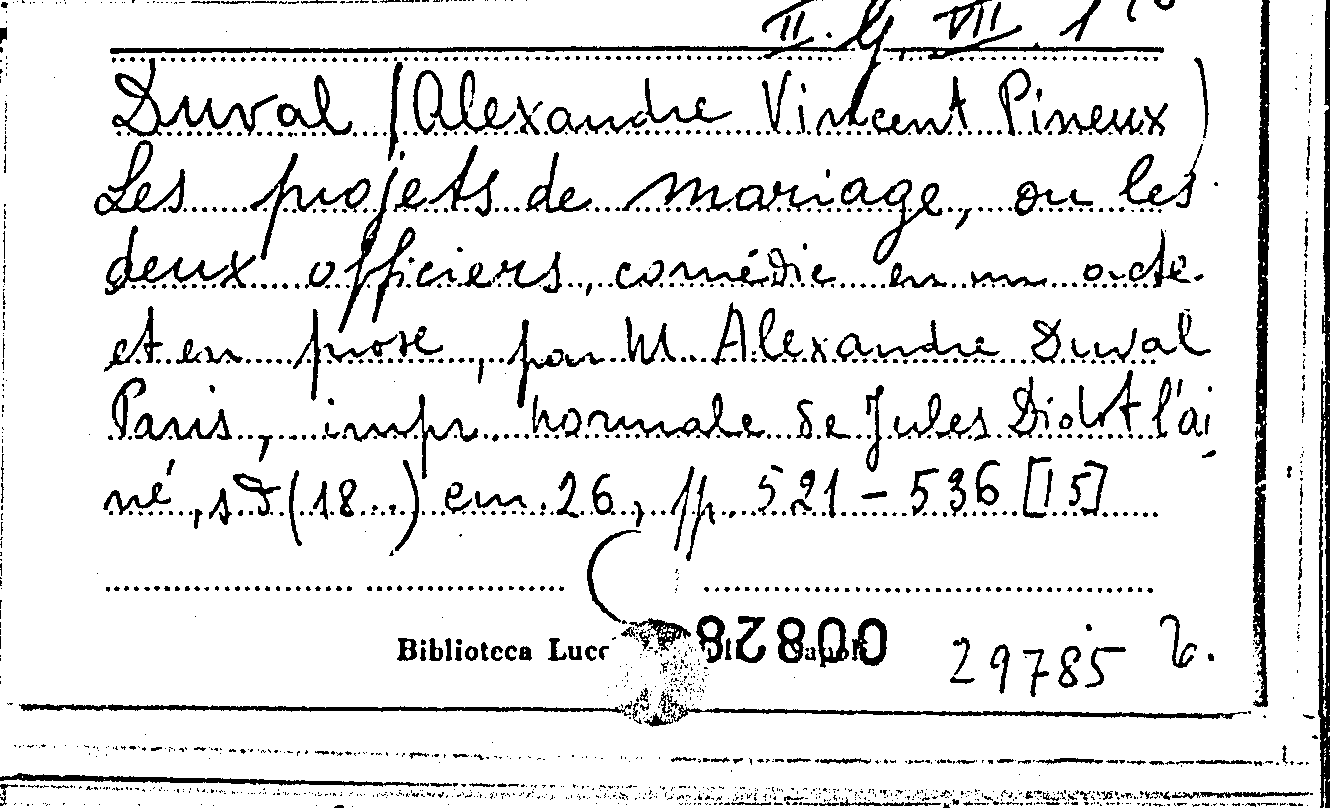 II. G. VII. 1
Duval (Alexandre Vincent Pineux)
Les projets de mariage, ou les
deux officiers, comédie en un acte
et en prose, par M. Alexandre Duval
Paris, impr. normale de Jules Didot l'ai-
né, s d (18..) cm. 26, pp. 521 - 536 [15]
Biblioteca Lucc
00828
29785 b.